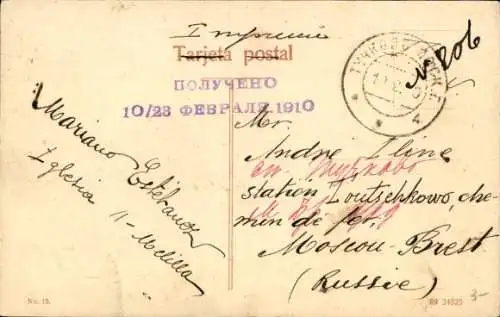 Imprimé
Tarjeta postal
ПОЛУЧЕНО
10/23 ФЕВРАЛЯ 1910
N 806
Mr
Andre Iline
ст. Тучково
station Toutschkowo, che-
min de fer,
Moscou-Brest
(Russie)
Mariano Estébanez
Iglesia 11 - Melilla
No. 15.
24525
3-